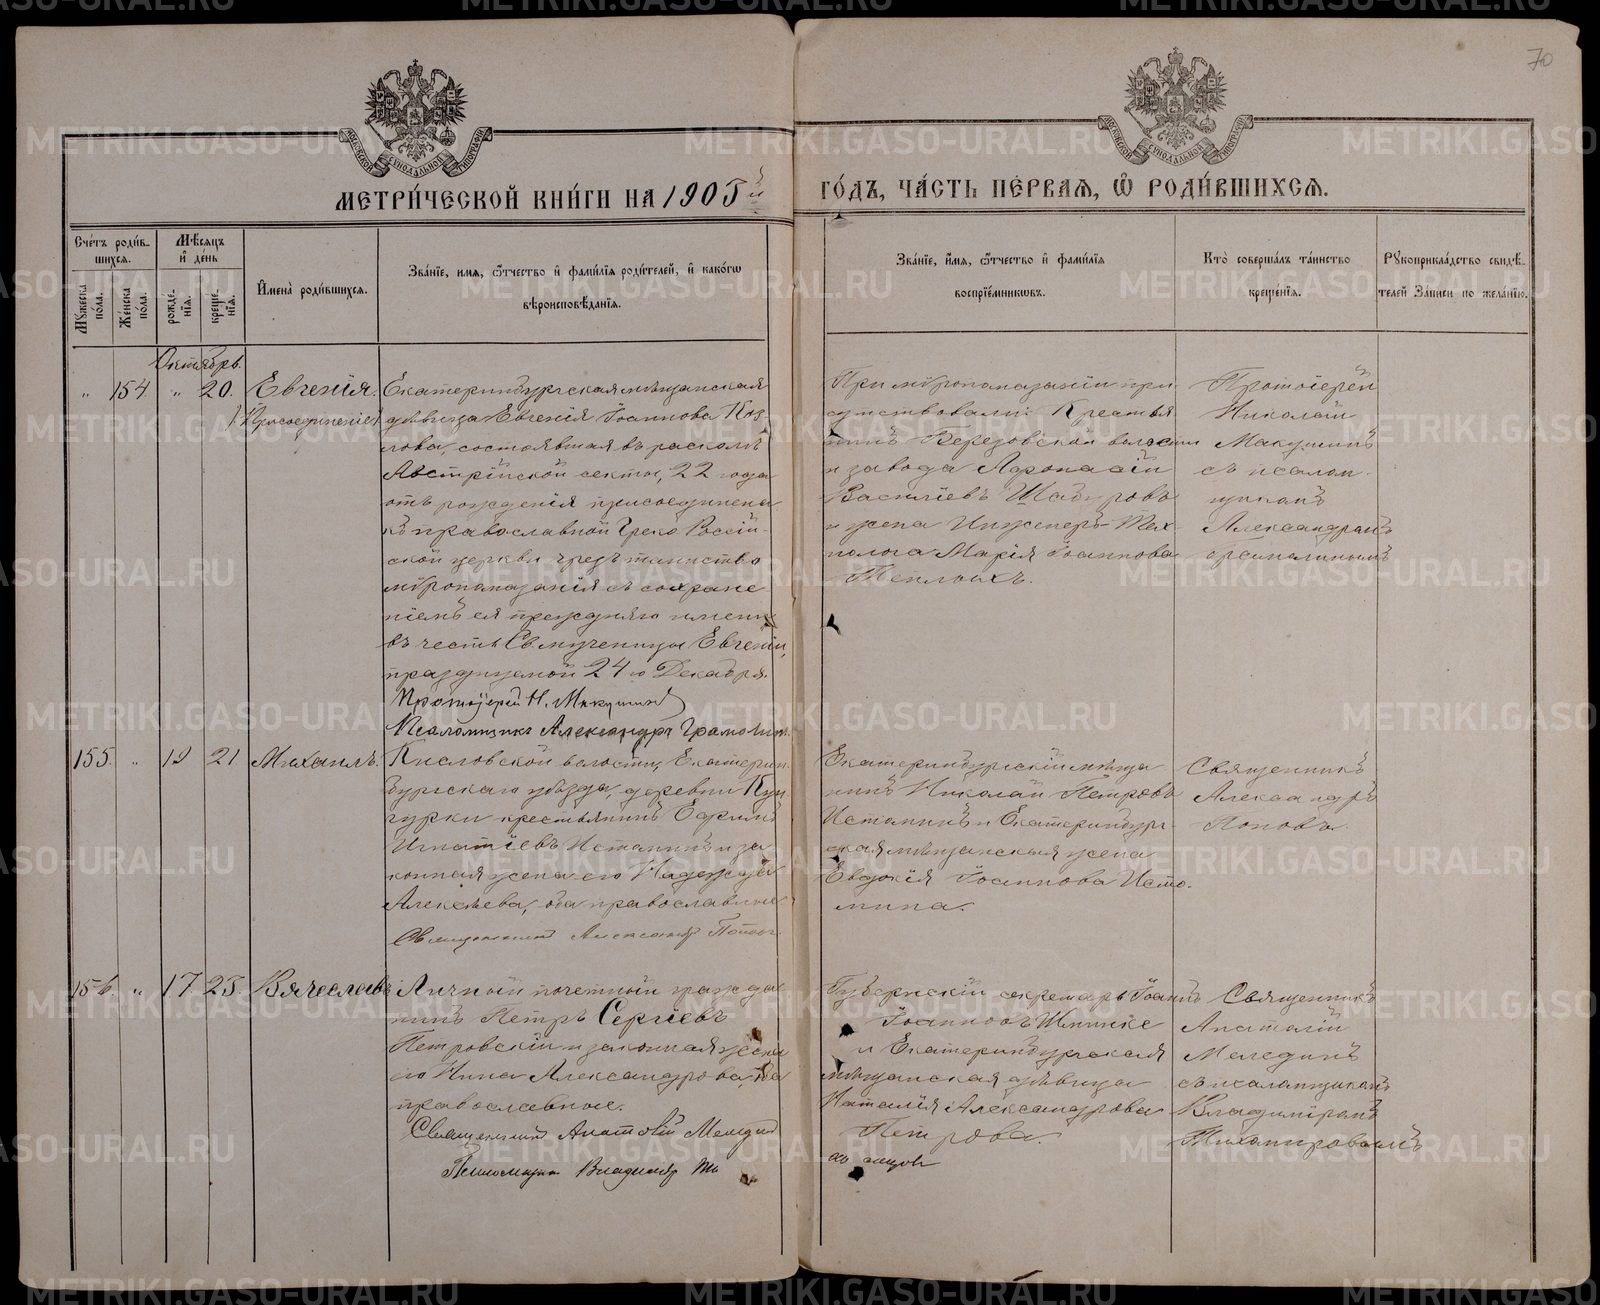 70
МОСКОВСКОЙ СИНОДАЛЬНОЙ ТИПОГРАФІИ
МОСКОВСКОЙ СИНОДАЛЬНОЙ ТИПОГРАФІИ
МЕТРИ́ЧЕСКОЙ КНИ́ГИ НА 1905й
ГО́ДЪ, ЧА́СТЬ ПЕ́РВАѦ, Ѿ РОДИ́ВШИХСѦ.
Сче́тъ роди́в-
шихся.
Мꙋжеска по́ла.
Же́нска по́ла.
Мѣ́сяцъ
и де́нь
рожде́-
нїя.
креще́-
нїя.
Имена̀ роди́вшихся.
Зва́нїе, имя, ѻтчество и фами́лїя роди́телей, и како́гѡ
вѣроисповѣ́данїя.
Зва́нїе, имя, ѻтчество и фами́лїя
воспрїе́мникѡвъ.
Кто̀ соверша́лъ та́инство
креще́нїя.
Рꙋкоприкла́дство свидѣ́-
телей за́писи по жела́нїю.
Октябрь.
„ 154 „ 20. Евгенія.
(Присоединеніе)
Екатеринбургская мѣщанская
дѣвица Евгенія Іоаннова Коз-
лова, состоявшая въ расколѣ
Австрійской секты, 22 года
отъ рожденія присоединена
къ православной Греко-Россій-
ской церкви чрезъ таинство
мѵропомазанія съ сохране-
ніемъ ея прежняго имени
въ честь Св. мученицы Евгеніи,
празднуемой 24го Декабря.
Протоіерей Н. Макушинъ
Псаломщикъ Александръ
При мѵропомазаніи при-
сутствовали: Крестья-
нинъ Березовской волости
и завода Афонасій
Васильевъ
и жена Инженеръ-Тех-
нолога Марія Іоаннова
Теплыхъ.
Протоіерей
Николай
Макушинъ
съ псалом-
щикомъ
Александромъ
155. „ 19 21 Михаилъ.
Кисловской волости, Екатерин-
бургскаго уѣзда, деревни Кун-
гурки крестьянинъ Ефимъ
Игнатіевъ Истоминъ и за-
конная жена его Надежда
Алексѣева, оба православные
Священникъ Александръ Поповъ.
Екатеринбургскій мѣща-
нинъ Николай Петровъ
Истоминъ и Екатеринбург-
ская мѣщанская жена
Евдокія Іоаннова Исто-
мина.
Священникъ
Александръ
Поповъ.
156. „ 17 23. Вячеславъ
Личный почетный гражда-
нинъ Петръ Сергіевъ
Петровскій и законная жена
его Нина Александрова оба
православные.
Священникъ Анатолій
Псаломщикъ Владиміръ
Губернскій секретарь Іоаннъ
Іоанновъ
и Екатеринбургская
мѣщанская дѣвица
Наталія Александрова
Петрова.
Священникъ
Анатолій
Мелединъ
съ псаломщикомъ
Владиміромъ
Тихомировымъ
METRIKI.GASO-URAL.RU